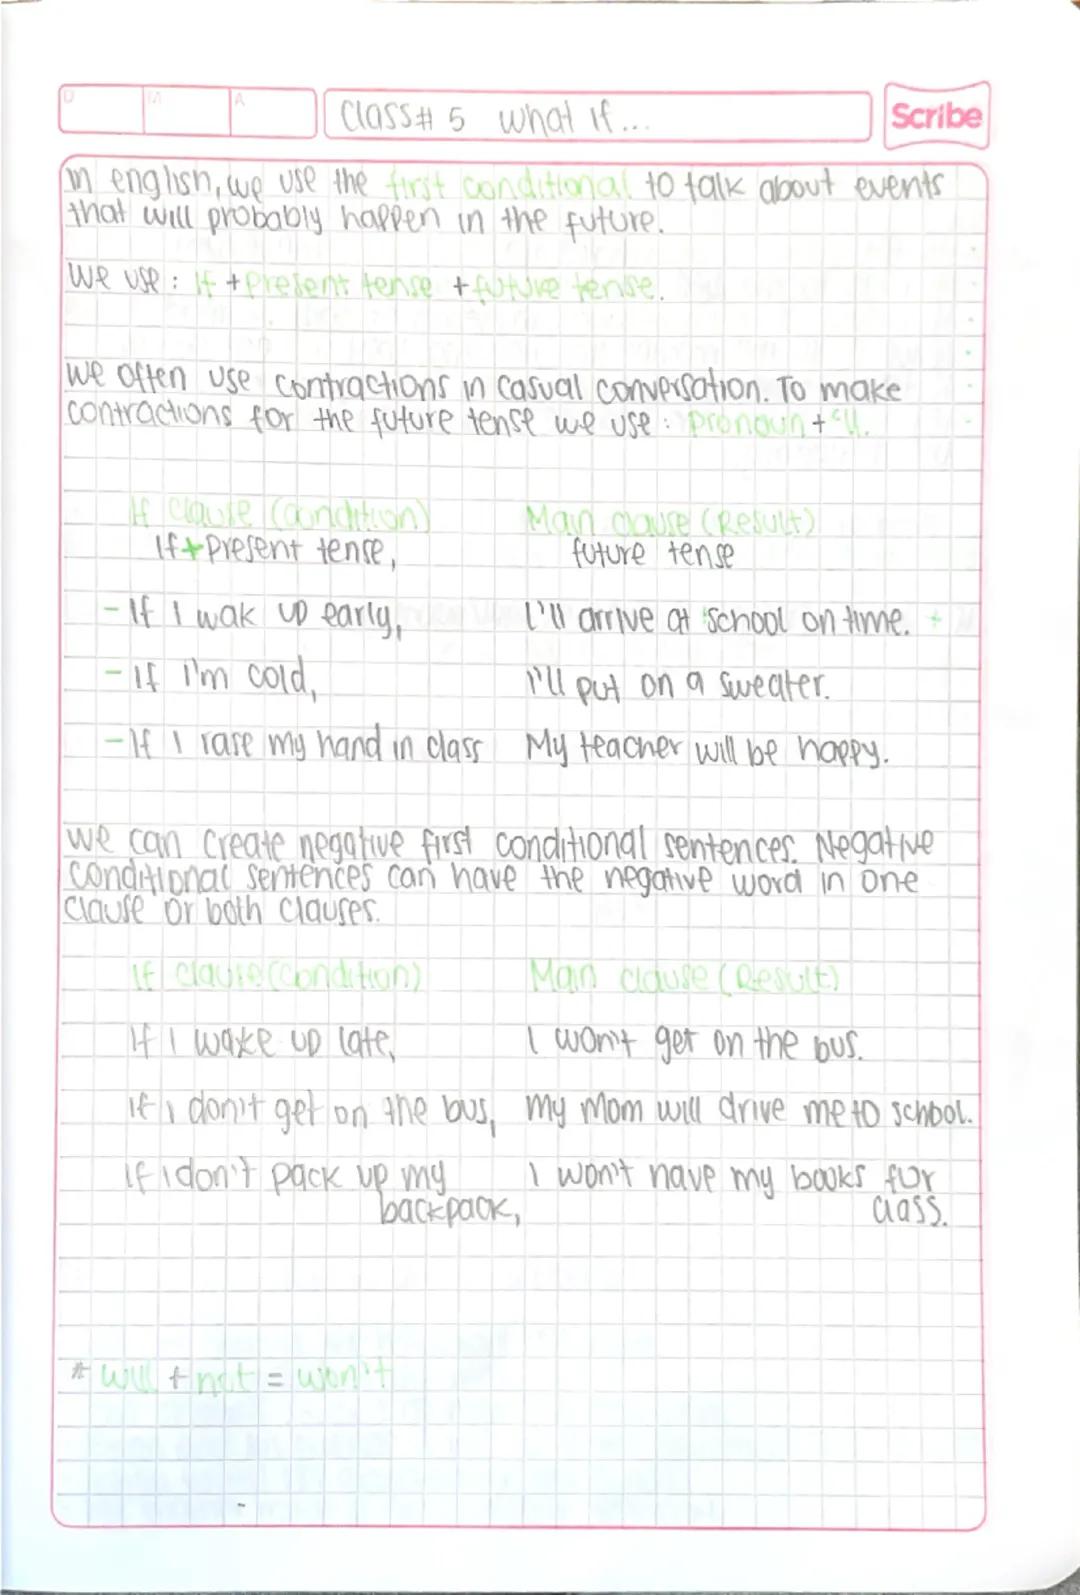 D M A
Class# 5 What if...
Scribe
In english, we use the first conditional to talk about events
that will probably happen in the future.
We use: If + Present tense + future tense.
We often use contractions in casual conversation. To make
contractions for the future tense we use: pronoun + 'll.
If clause (condition) Main clause (Result)
If + present tense, future tense
- If I wak up early, I'll arrive at school on time.
- If I'm cold, I'll put on a sweater.
- If I rase my hand in class My teacher will be happy.
We can create negative first conditional sentences. Negative
conditional sentences can have the negative word in one
clause or both clauses.
If clause (condition) Main clause (Result)
If I wake up late, I won't get on the bus.
If I don't get on the bus, my Mom will drive me to school.
If I don't pack up my I won't have my books for
backpack, class.
* will + not = won't